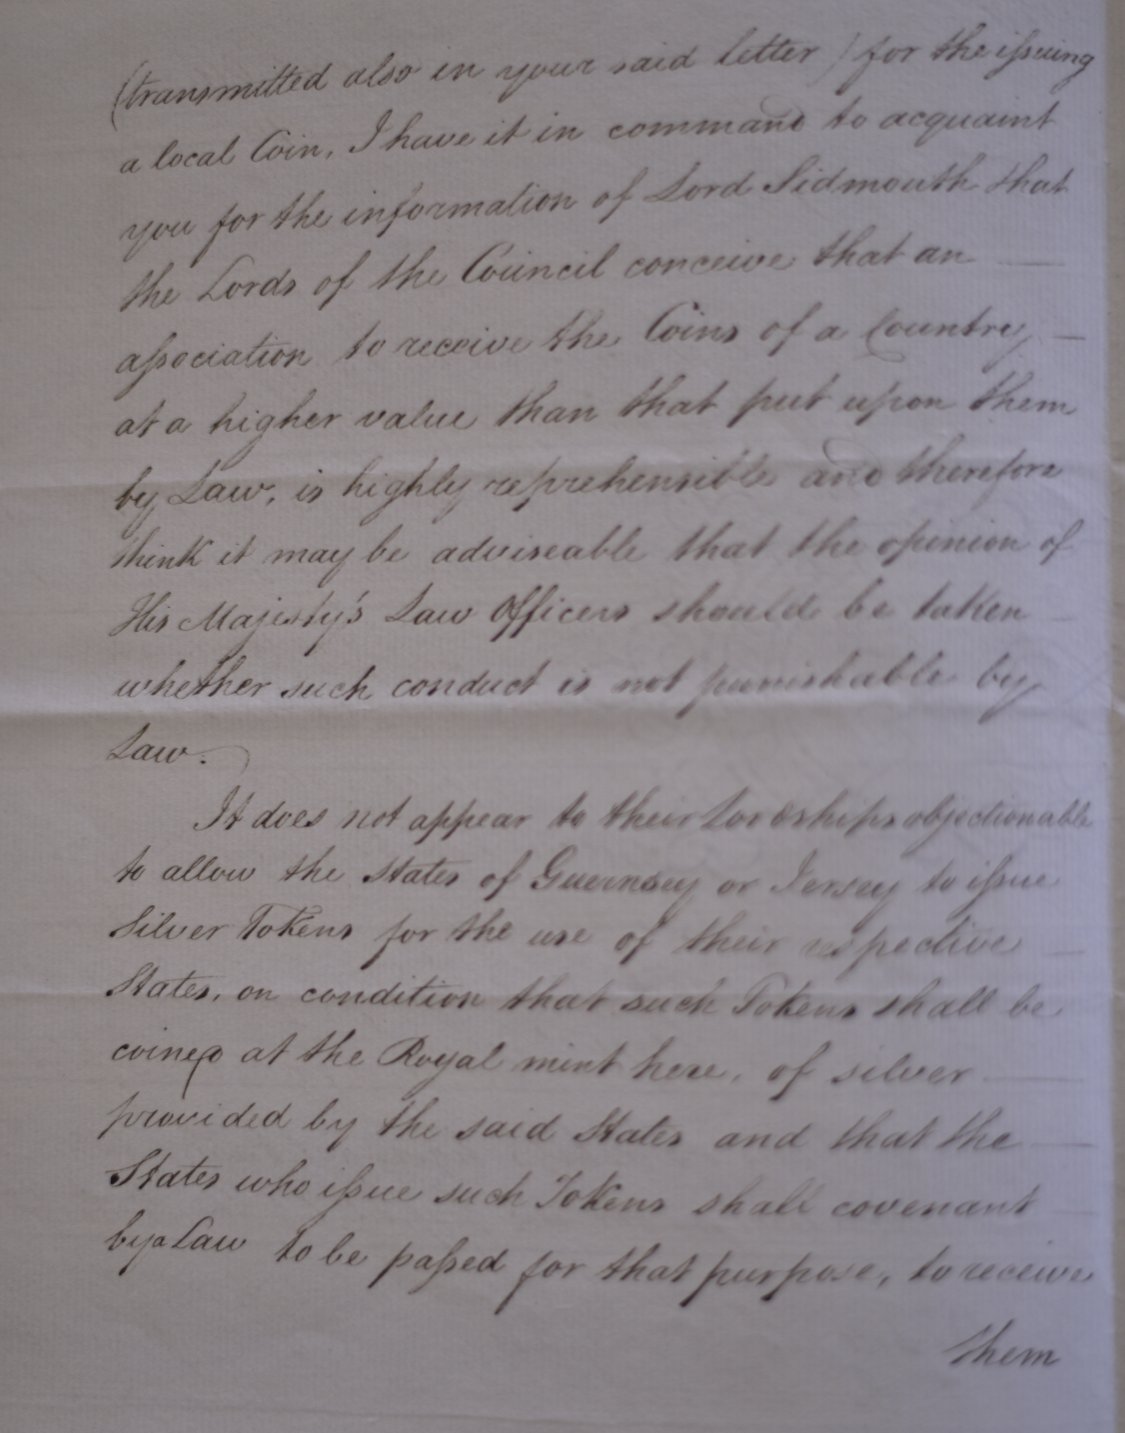 (transmitted also in your said letter) for the ifsuing
a local Coin, I have it in command to acquaint
you for the information of Lord Sidmouth that
the Lords of the Council conceive that an
afsociation to receive the Coins of a Country
at a higher value than that put upon them
by Law, is highly reprehensible and therefore
think it may be adviseable that the opinion of
His Majesty's Law Officers should be taken
whether such conduct is not punishable by
Law.
It does not appear to their Lordships objectionable
to allow the States of Guernsey or Jersey to ifsue
Silver Tokens for the use of their respective
States, on condition that such Tokens shall be
coined at the Royal mint here, of silver
provided by the said States and that the
States who ifsue such Tokens shall covenant
by a Law to be pafsed for that purpose, to receive
them